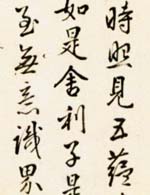 時照見五蘊
如是舍利子是
至無意識界